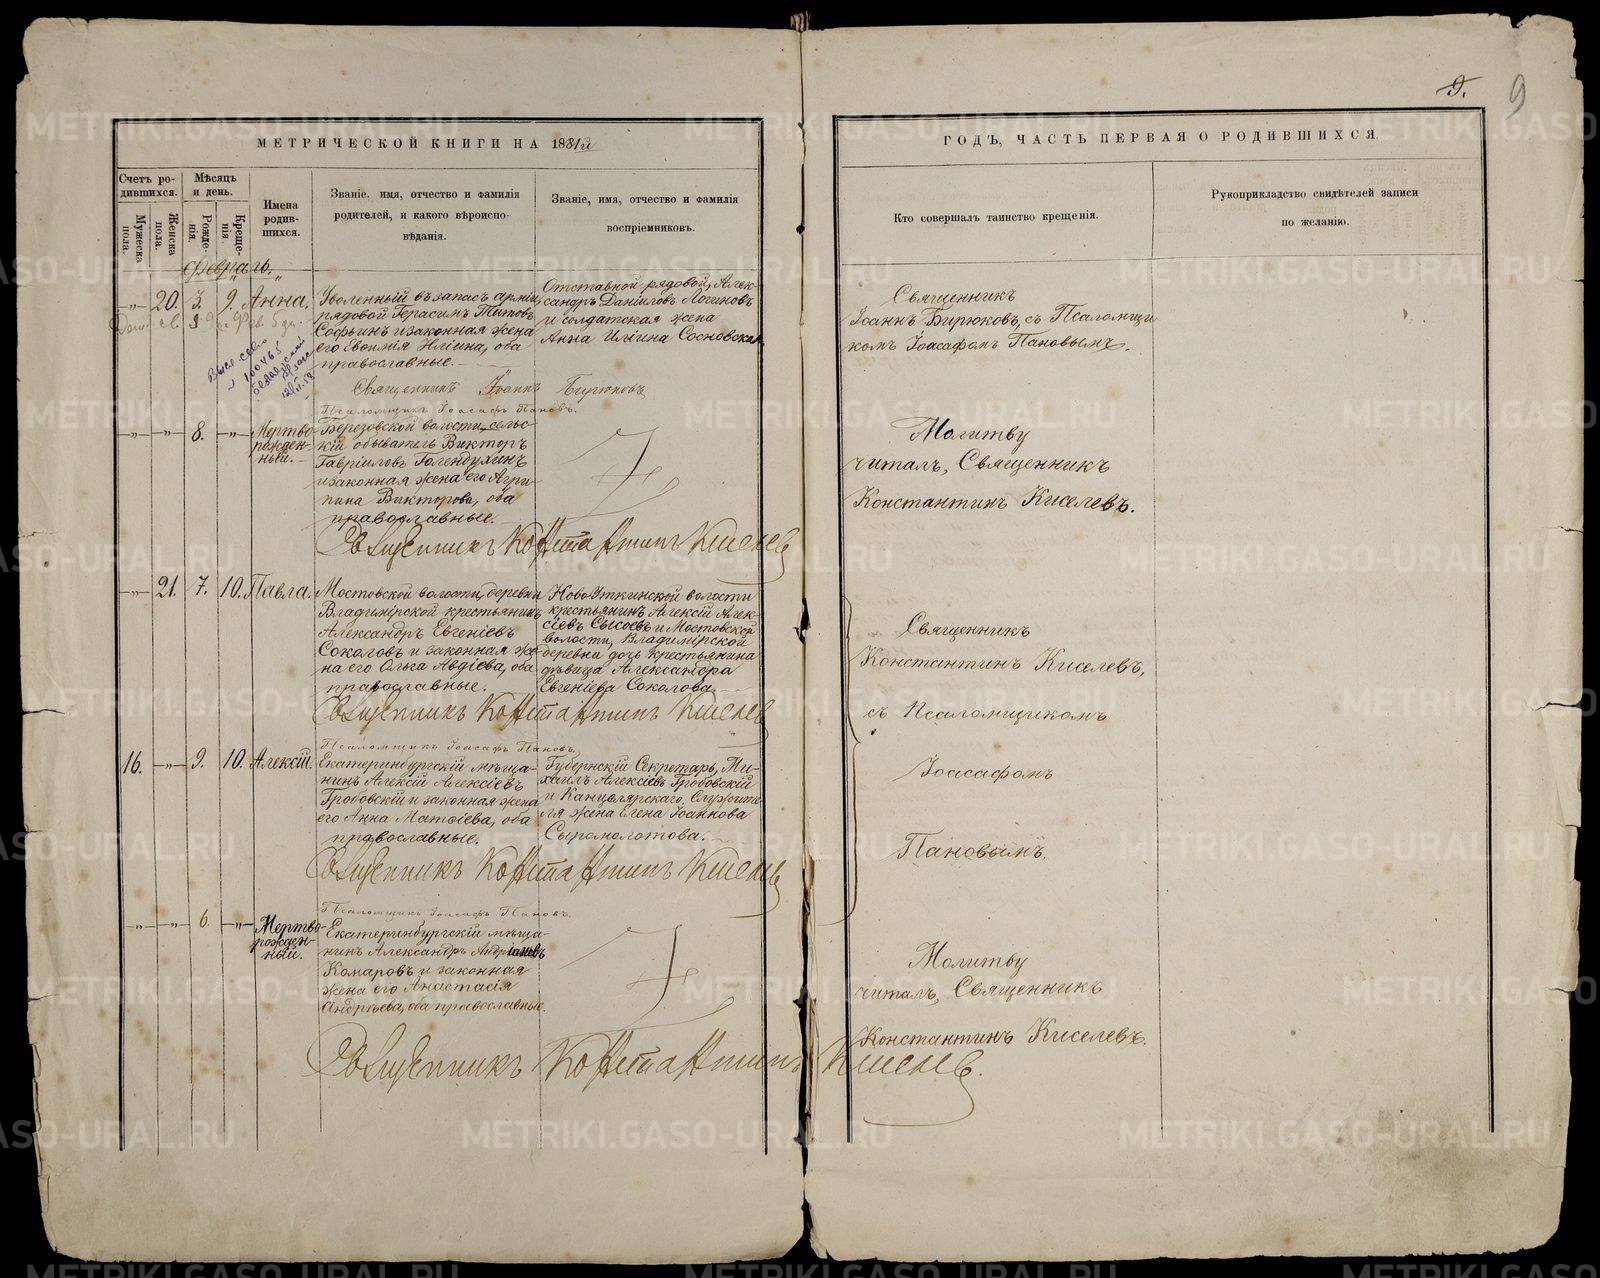 9.
9
МЕТРИЧЕСКОЙ КНИГИ НА 1881й
ГОДЪ, ЧАСТЬ ПЕРВАЯ О РОДИВШИХСЯ.
Счетъ родившихся.
Мужеска пола.
Женска пола.
Мѣсяцъ и день.
Рожденія.
Крещенія.
Имена родившихся.
Званіе, имя, отчество и фамилія
родителей, и какого вѣроиспо-
вѣданія.
Званіе, имя, отчество и фамилія
воспріемниковъ.
Кто совершалъ таинство крещенія.
Рукоприкладство свидѣтелей записи
по желанію.
Февраль.
-"- 20. 3. 9. Анна.
Уволенный въ запасъ арміи,
рядовой Герасимъ Титовъ
Софьинъ и законная жена
его Евѳимія Иліина, оба
православные.
Отставной рядовой, Алек-
сандръ Даниловъ Логиновъ
и солдатская жена
Анна Иліина Сосновская
Священникъ
Іоаннъ Бирюковъ, съ Псаломщи-
комъ Іоасафомъ Пановымъ.
Священникъ Іоаннъ Бирюковъ
Псаломщикъ Іоасафъ Пановъ.
-"- -"- 8. -"- Мертво-
рожден-
ный.
Березовской волости, сельс-
кій обыватель Викторъ
Гавріиловъ Голендухинъ
и законная жена его Агри-
пина Викторова, оба
православные.
Молитву
читалъ, Священникъ
Константинъ Киселевъ.
Священникъ Константинъ Киселев
-"- 21. 7. 10. Павла.
Мостовской волости, деревни
Владимірской крестьянинъ
Александръ Евгеніевъ
Соколовъ и законная же-
на его Ольга Авдіева, оба
православные.
Ново Уткинской волости
крестьянинъ Алексій Алек-
сіевъ Сысоевъ и Мостовской
волости, Владимірской
деревни дочь крестьянина
дѣвица Александра
Евгеніева Соколова.
Священникъ
Константинъ Киселевъ,
съ Псаломщикомъ
Іоасафомъ
Пановымъ.
Священникъ Константинъ Киселев
Псаломщикъ Іоасафъ Пановъ.
16. -"- 9. 10. Алексій.
Екатеринбургскій мѣща-
нинъ Алексій Алексіевъ
Гробовскій и законная жена
его Анна Матѳіева, оба
православные.
Губернскій Секретарь, Ми-
хаилъ Алексіевъ Гробовскій
и Канцелярскаго Служите-
ля жена Елена Іоаннова
Сыромолотова.
Священникъ Константинъ Киселев
Псаломщикъ Іоасафъ Пановъ.
-"- -"- 6. -"- Мертво-
рожден-
ный.
Екатеринбургскій мѣща-
нинъ Александръ Андріановъ
Комаровъ и законная
жена его Анастасія
Андрѣева, оба православные.
Молитву
читалъ, Священникъ
Константинъ Киселевъ.
Священникъ Константинъ Киселев.
METRIKI.GASO-URAL.RU